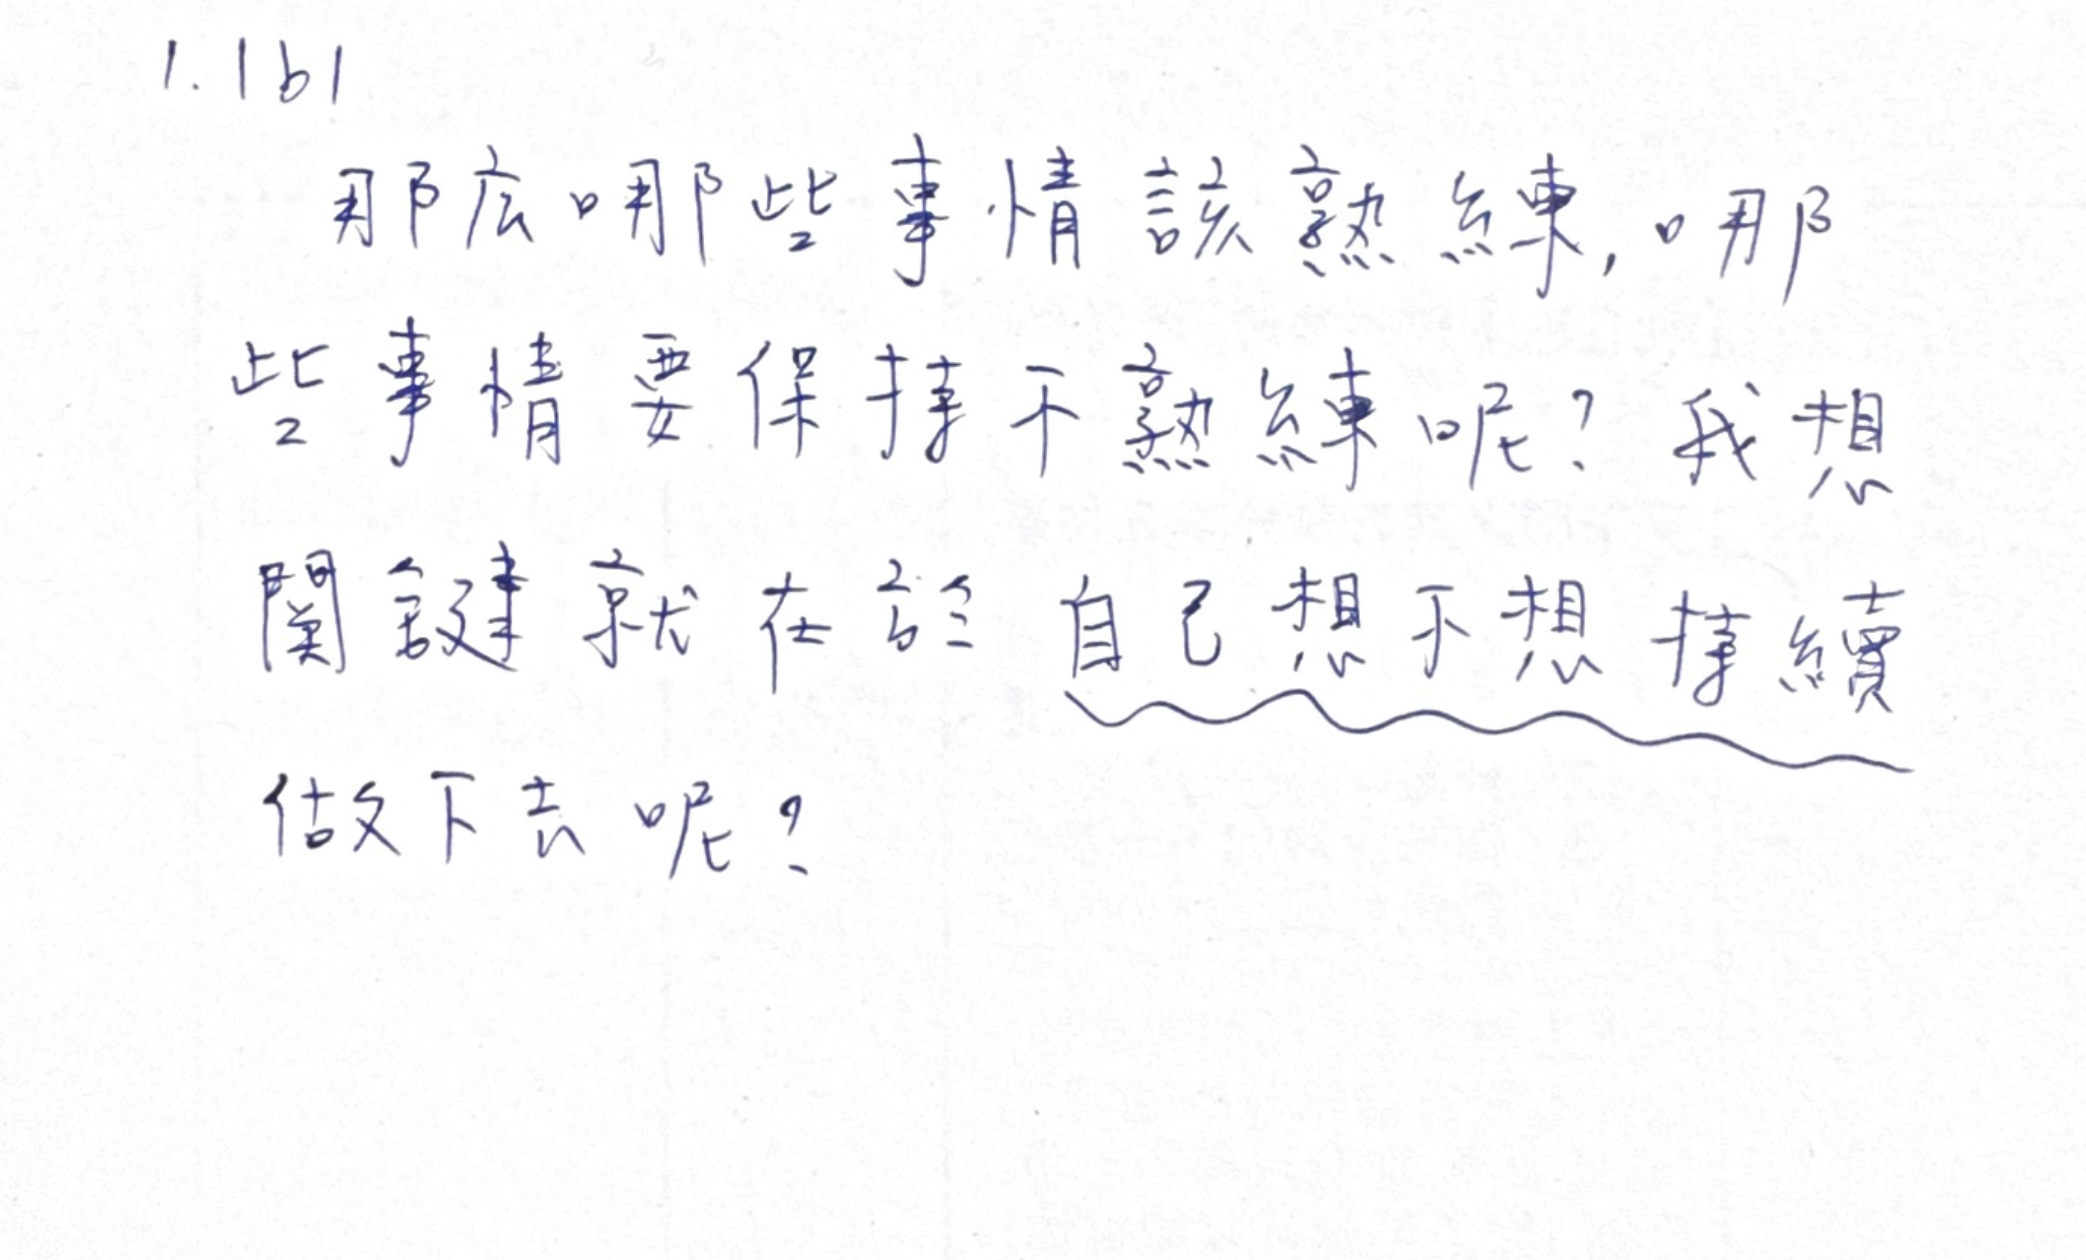 1.1b1
那麼哪些事情該熟練,哪
些事情要保持不熟練呢?我想
關鍵就在於自己想不想持續
做下去呢?